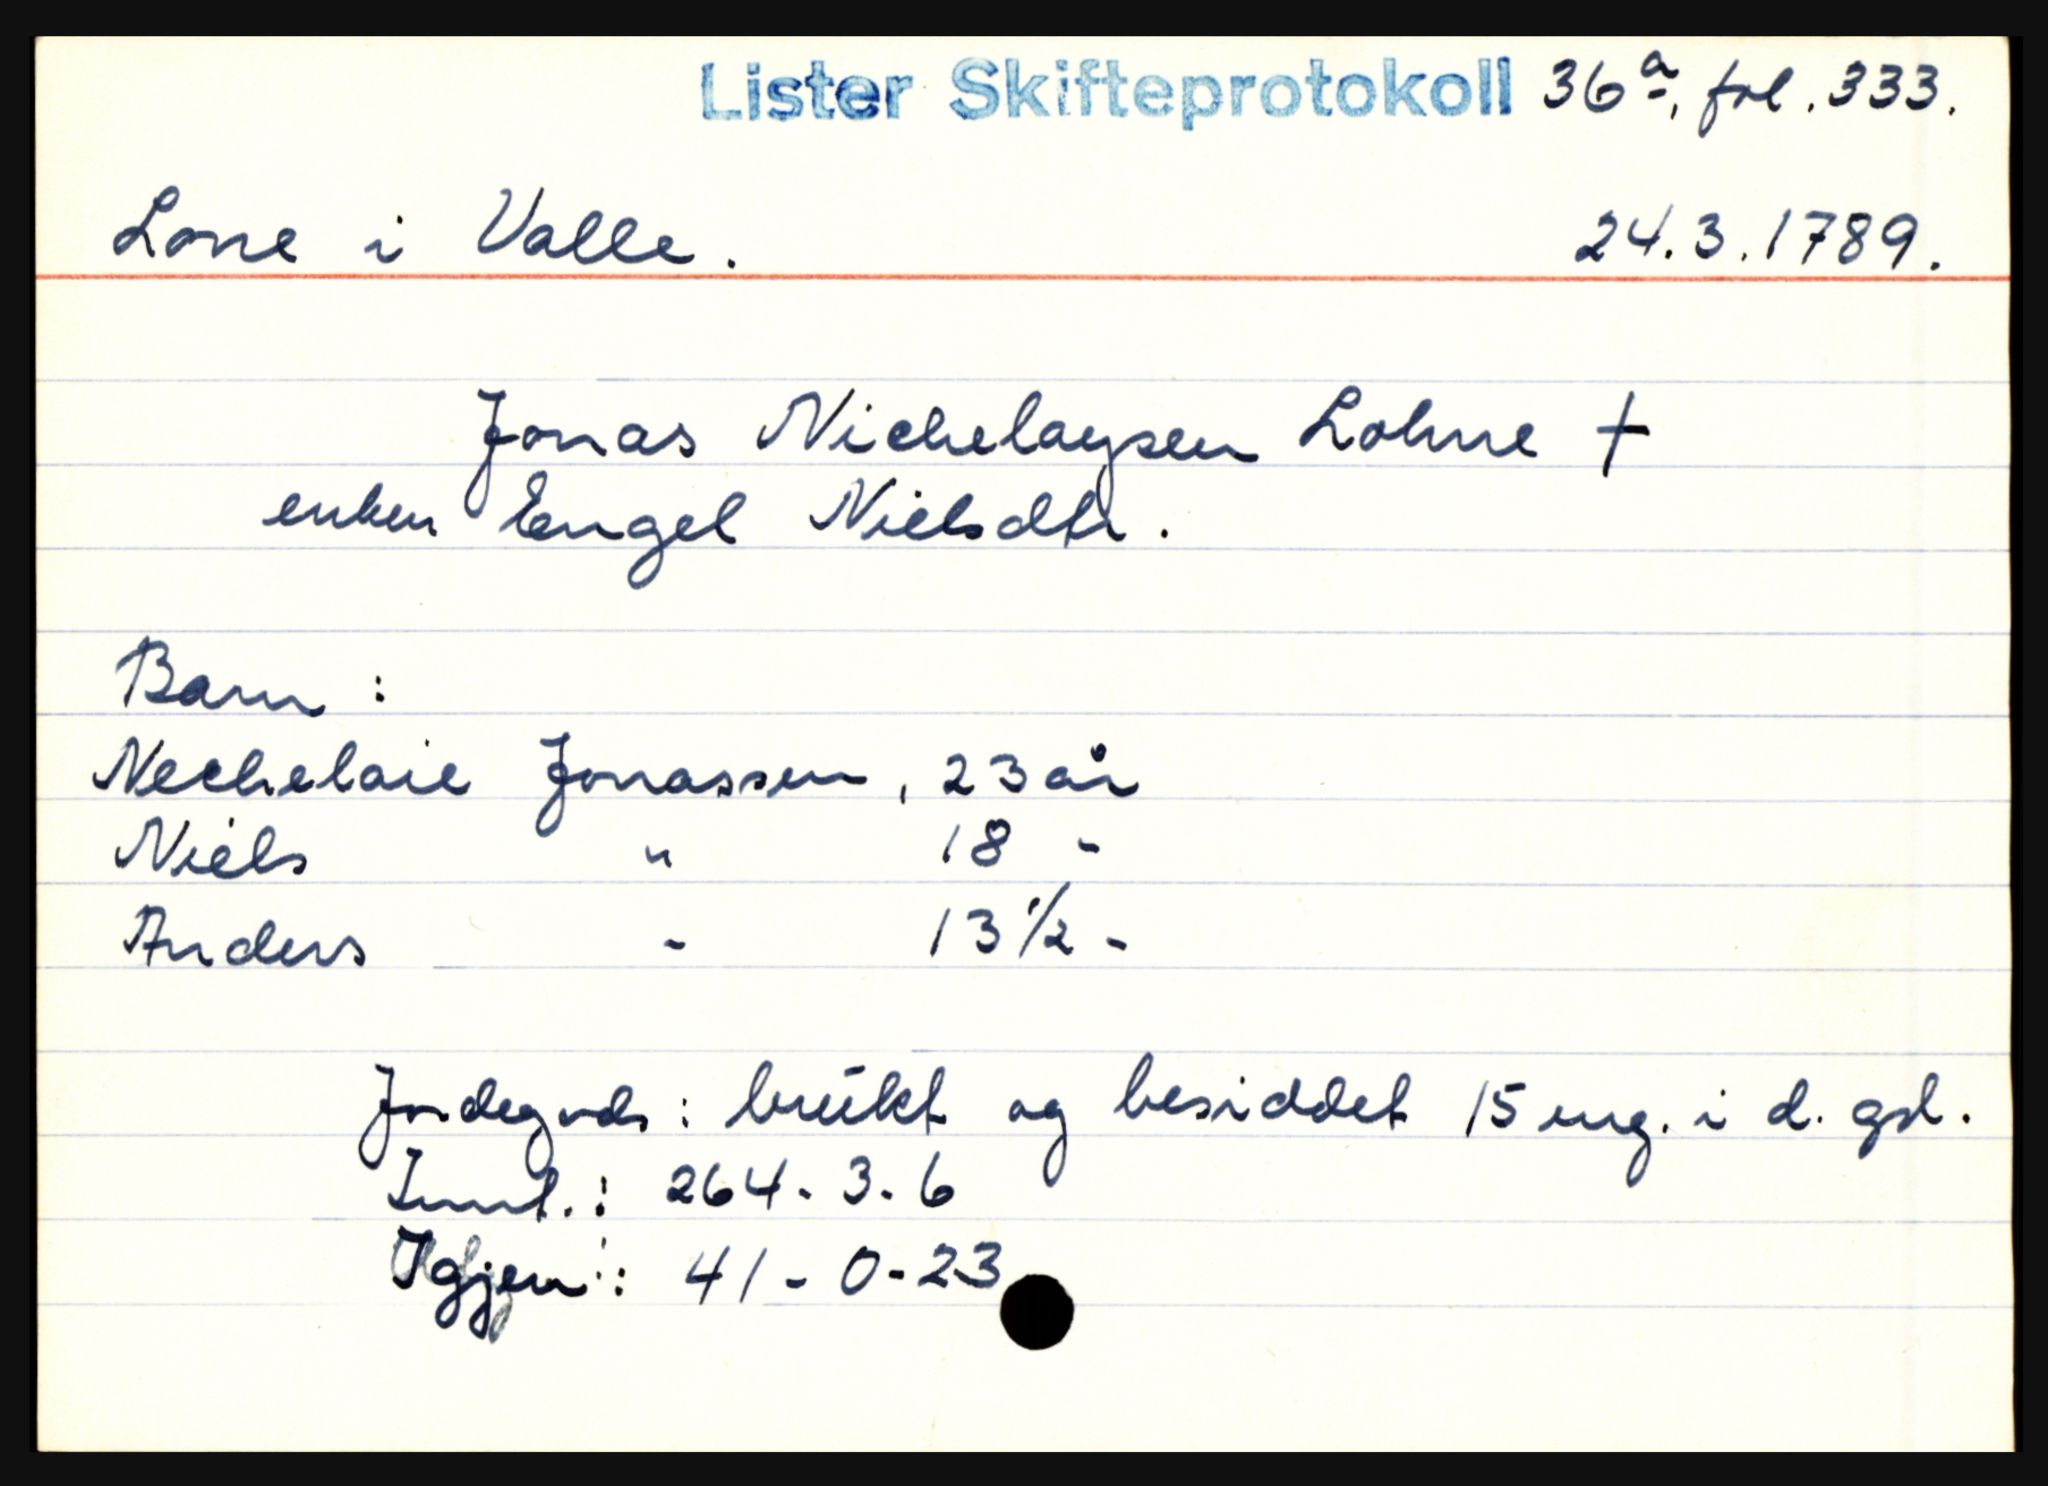 Lister Skifteprotokoll 36a, fol. 333.
Lone i Valle. 24.3.1789.
Jonas Nichelaysen Lohne †
enken Engel Nielsdtr.
Barn:
Nechelaie Jonassen, 23 år
Niels " 18 -
Anders - 13 1/2 -
Jordegods: brukt og besiddet 15 eng. i d. gd.
Innt.: 264-3-6
Igjen: 41-0-23